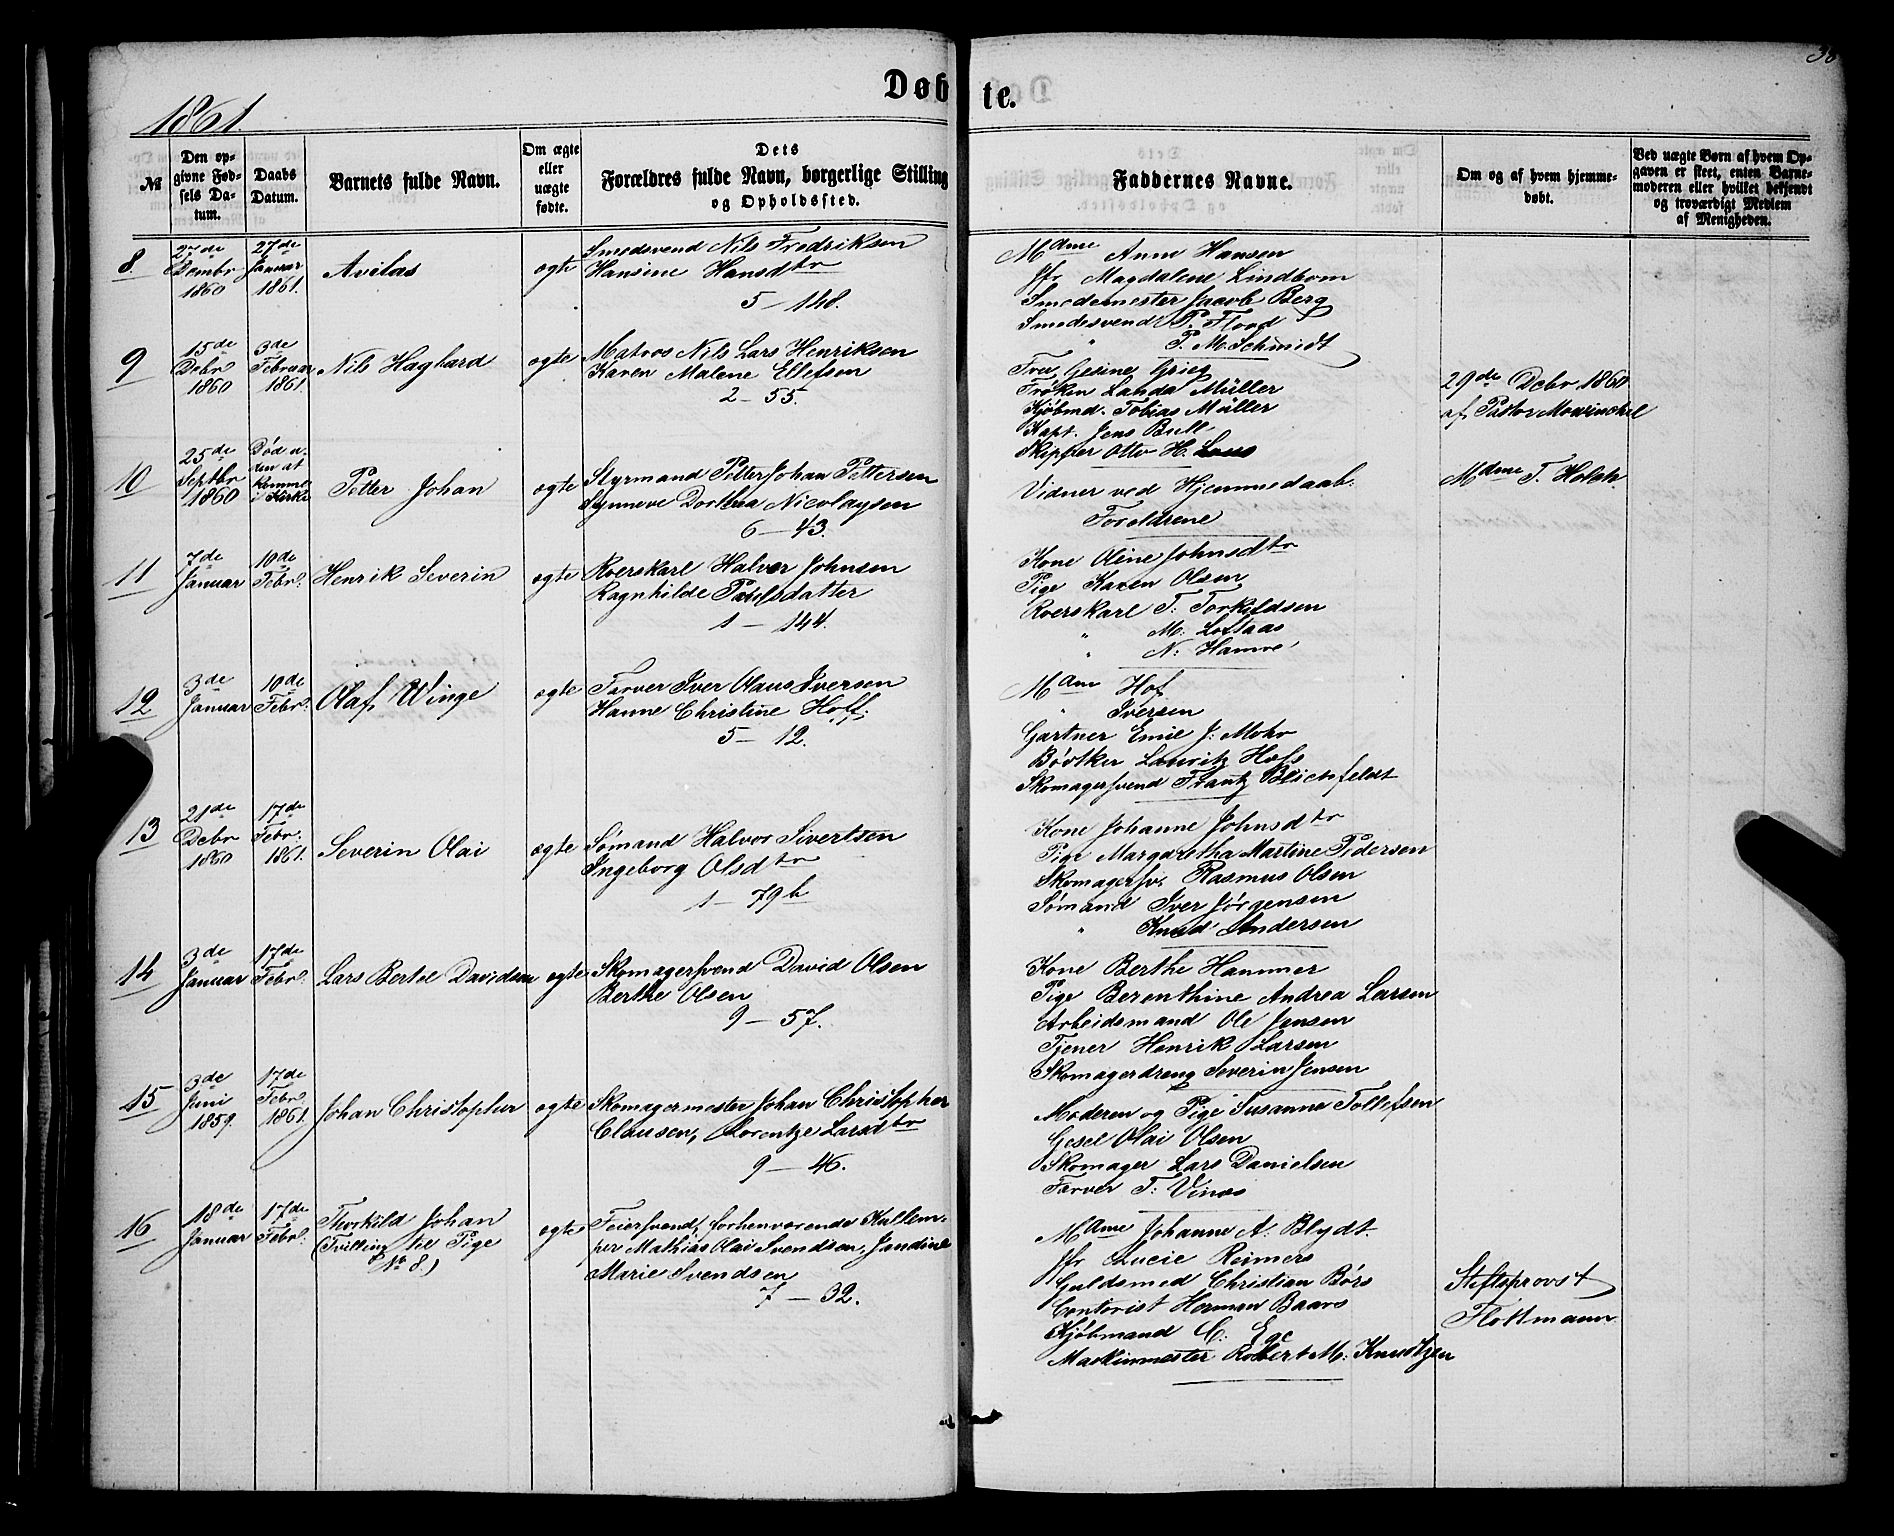 38
Døbte.
1861.
№
Den opgivne Fødsels Datum.
Daabs Datum.
Barnets fulde Navn.
Om ægte eller uægte fødte.
Dets Forældres fulde Navn, borgerlige Stilling og Opholdssted.
Faddernes Navne.
Om og af hvem hjemmedøbt.
Ved uægte Børn af hvem Opgaven er skeet, enten Barnemoderen eller hvilket bekjendt og troværdigt Medlem af Menigheden.
8. 27de Dcembr 1860 27de Januar 1861. Avilas ægte Smedesvend Nils Fredriksen
Hansine Hansdtr
5 – 148.
Mdme Anne Hansen
Jfr Magdalene Lindbom
Smedemester Jacob Berg
Smedesvend P. Flood
" P. M. Schmidt
9 15de Debr 1860 3de Februar 1861. Nils Hagbard ægte Matros Nils Lars Henriksen
Karen Malene Ellefsen
2 – 55.
Frue Gesine Grieg
Frøken Landa Müller
Kjøbmd. Tobias Müller
Kapt. Jens Bull
Skipper Otto H. Laus
29de Debr. 1860.
af Pastor Mowinckel
10 25de Septbr 1860 Død uden at komme i Kirke Petter Johan ægte Styrmand Petter Johan Pettersen
Synneve Dorthea Nicolaysen
6 – 43.
Vidner ved Hjemmedaab:
Forældrene
Mdme T. Holch.
11 7de Januar 10de Febr. Henrik Severin ægte Roerskarl Halvor Johnsen
Ragnhilde Poulsdatter
1 – 144.
Kone Oline Johnsdtr
Pige Karen Olsen
Roerskarl T: Torkildsen
" M: Loftaas
" N: Hamre
12 3de Januar 10de Febr. Olaf Winge ægte Farver Iver Olaus Iversen
Hanne Christine Hoff.
5 – 12.
Mdme Hof
" Iversen
Gartner Emil J: Mohr
Bødker Lauritz Hofs
Skomagersvend Frantz Blichfeldt
13 21de Debr 1860 17de Febr. 1861. Severin Olai ægte Sømand Halvor Sivertsen
Ingeborg Olsdtr
1 – 79b
Kone Johanne Johnsdtr
Pige Margaretha Martine Pedersen
Skomagersv. Rasmus Olsen
Sømand Iver Jørgensen
" Knud Andersen
14 3de Januar 17de Febr. Lars Bertel Davidsen ægte Skomagersvend David Olsen
Berthe Olsen
9 – 57.
Kone Berthe Hammer
Pige Berenthine Andrea Larsen
Arbeidsmand Ole Jensen
Tjener Henrik Larsen
Skomagerdreng Severin Jensen
15 3de Juni 1859. 17de Febr. 1861. Johan Christopher ægte Skomagermester Johan Christopher
Clausen, Lorentze Larsdtr
9 – 46.
Moderen og Pige Susanne Tollefsen
Gesel Olai Olsen
Skomager Lars Danielsen
Farver T: Vinæs
16 18de Januar 17de Febr. Thorkild Johan
(Tvilling til Pige
№ 8) ægte Feiersvend, forhenværende Kullem-
per Mathias Olai Svendsen, Jandine
Marie Svendsen
7 – 32.
Mdme Johanne A: Blydt.
Jfr Lucie Reimers
Guldsmed Christian Børs
Contorist Herman Baars
Kjøbmand C: Ege
Maskinmester Robert M: Knudtzen
Stiftsprovst
Flottmann